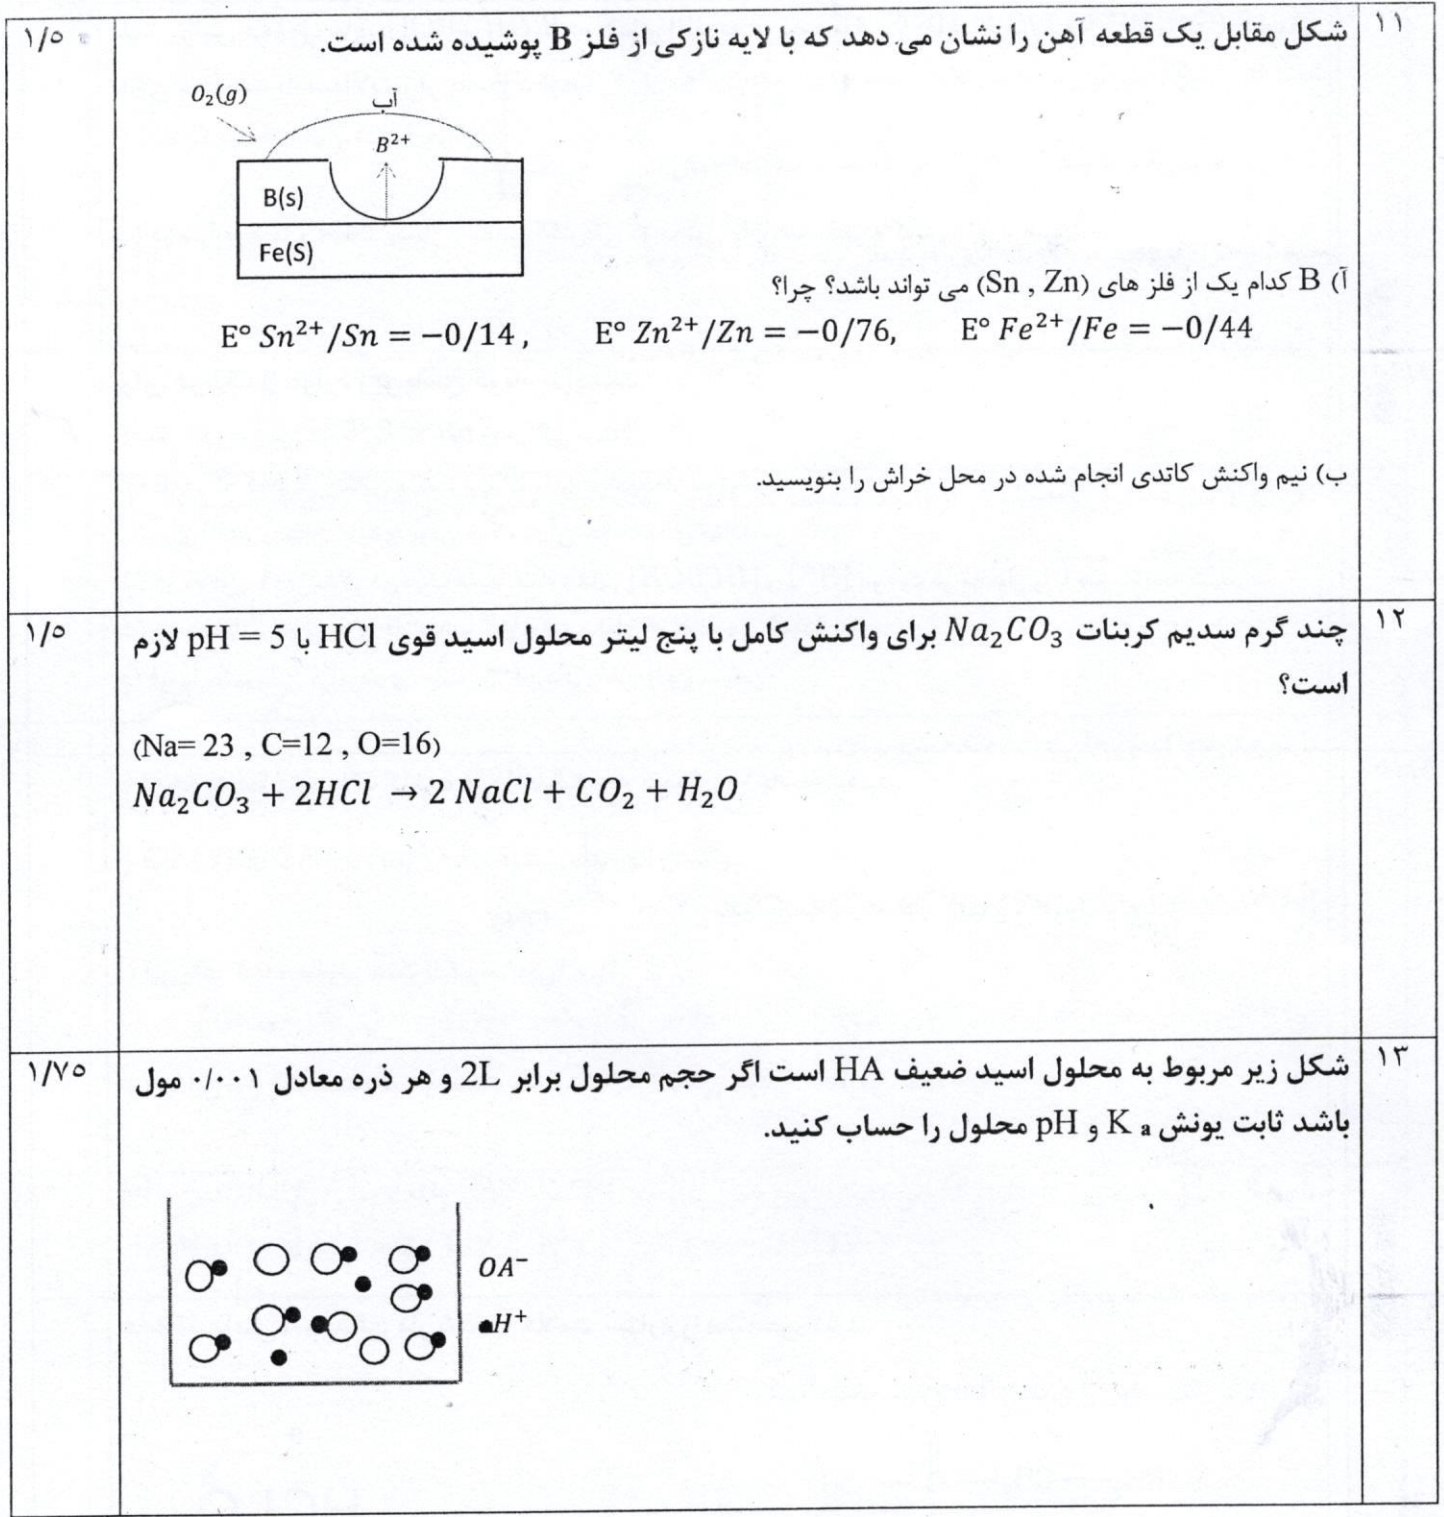 ۱۱
شکل مقابل یک قطعه آهن را نشان می دهد که با لایه نازکی از فلز B پوشیده شده است.
۱/۵
O₂(g)
آب
B²⁺
B(s)
Fe(S)
آ) B کدام یک از فلز های (Sn , Zn) می تواند باشد؟ چرا؟
E° Sn²⁺/Sn = −0/14 , E° Zn²⁺/Zn = −0/76, E° Fe²⁺/Fe = −0/44
ب) نیم واکنش کاتدی انجام شده در محل خراش را بنویسید.
۱۲
چند گرم سدیم کربنات Na₂CO₃ برای واکنش کامل با پنج لیتر محلول اسید قوی HCl با pH = 5 لازم
۱/۵
است؟
(Na= 23 , C=12 , O=16)
Na₂CO₃ + 2HCl → 2 NaCl + CO₂ + H₂O
۱۳
شکل زیر مربوط به محلول اسید ضعیف HA است اگر حجم محلول برابر 2L و هر ذره معادل ۰/۰۰۱ مول
۱/۷۵
باشد ثابت یونش K a و pH محلول را حساب کنید.
OA⁻
H⁺